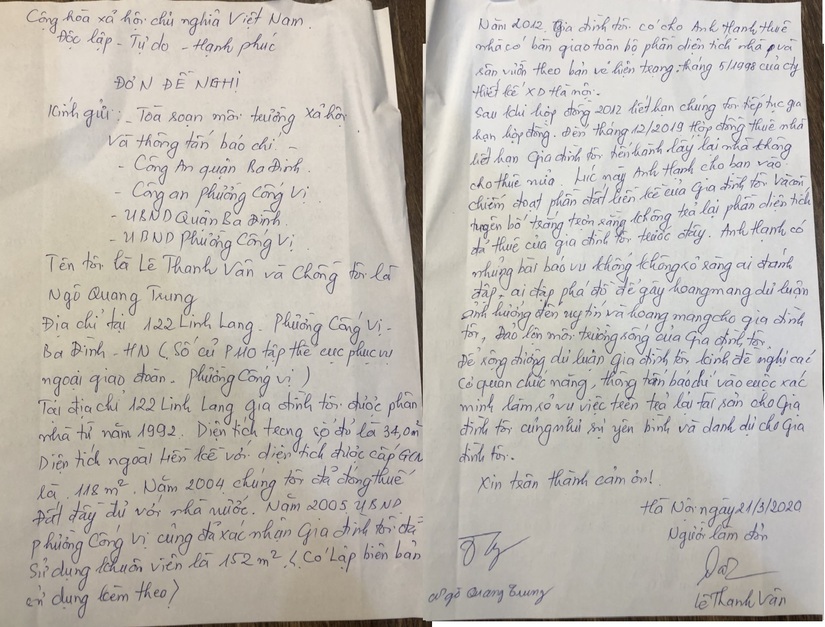 Cộng hòa xã hội chủ nghĩa Việt Nam.
Độc lập - Tự do - Hạnh phúc
ĐƠN ĐỀ NGHỊ
Kính gửi: - Tòa soạn môi trường xã hội
Và thông tấn báo chí -
- Công An quận Ba Đình.
- Công an phường Cống Vị
- UBND Quận Ba Đình.
- UBND Phường Cống Vị
Tên tôi là Lê Thanh Vân và Chồng tôi là
Ngô Quang Trung
Địa chỉ tại 122 Linh Lang - Phường Cống Vị -
Ba Đình - HN (Số cũ P110 tập thể cục phục vụ
ngoại giao đoàn - Phường Cống vị)
Tại địa chỉ 122 Linh Lang gia đình tôi được phân
nhà từ năm 1992. Diện tích trong sổ đỏ là 34,0m²
Diện tích ngoài liền kề với diện tích được cấp GCN
là 118 m². Năm 2004 chúng tôi đã đóng thuế
Đất đầy đủ với nhà nước. Năm 2005 UBND
phường Cống vị cũng đã xác nhận Gia đình tôi đã
Sử dụng khuôn viên là 152 m². (Có Lập biên bản
sử dụng kèm theo)
Năm 2012. Gia đình tôi có cho Anh Hạnh thuê
nhà có bàn giao toàn bộ phần diện tích nhà và
sân vườn theo bản vẽ hiện trạng tháng 5/1998 của cty
thiết kế XD Hà nội.
Sau khi hợp đồng 2012 hết hạn chúng tôi tiếp tục gia
hạn hợp đồng. Đến tháng 12/2019 Hợp đồng thuê nhà
hết hạn Gia đình tôi tiến hành lấy lại nhà không
cho thuê nữa. Lúc này Anh Hạnh cho ban vào
chiếm đoạt phần đất liền kề của Gia đình tôi và còn
tuyên bố trắng trợn rằng không trả lại phần diện tích
đã thuê của gia đình tôi trước đây. Anh Hạnh có
những bài báo vu khống không rõ ràng ai đánh
đập - ai đập phá đồ để gây hoang mang dư luận
ảnh hưởng đến uy tín và hoang mang cho gia đình
tôi, Đảo lộn môi trường sống của Gia đình tôi.
Để rộng đường dư luận Gia đình tôi kính đề nghị các
Cơ quan chức năng, thông tấn báo chí vào cuộc xác
minh làm rõ vụ việc trên trả lại tài sản cho Gia
đình tôi cũng như sự yên bình và danh dự cho Gia
đình tôi.
Xin trân thành cảm ơn!
Hà Nội ngày 21/3/2020
Người làm đơn
Ngô Quang Trung
Lê Thanh Vân